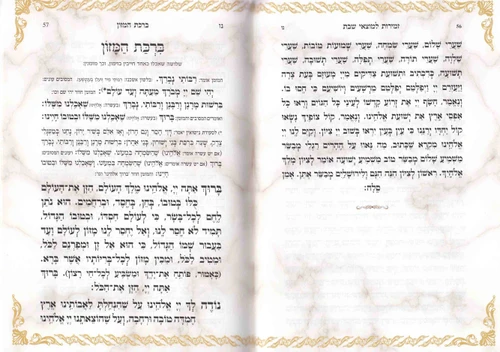 56
זמירות למוצאי שבת
נו
שערי שלום, שערי שמחה, שערי שמועות טובות, שערי
תשועה, כדכתיב ותשועת צדיקים מיי מעוזם בעת צרה
ויעזרם יי ויפלטם יפלטם מרשעים ויושיעם כי חסו בו.
ונאמר, חשף יי את זרוע קדשו לעיני כל הגוים וראו כל
אפסי ארץ את ישועת אלהינו. ונאמר, קול צופיך נשאו
קול יחדו ירננו כי עין בעין יראו בשוב יי ציון. וקים לנו יי
אלהינו מקרא שכתוב, מה נאוו על ההרים רגלי מבשר
משמיע שלום מבשר טוב משמיע ישועה אומר לציון מלך
אלהיך. ראשון לציון הנה הנם ולירושלים מבשר אתן. אמן
סלה:
נז
ברכת המזון
57
ברכת המזון
שלושה שאכלו כאחד חייבין בזימון, וכך מזמנין
המזמן אומר: רבותי נברך.
יהי שם יי מברך מעתה ועד עולם:
ברשות מרנן ורבנן ורבותי, נברך שאכלנו משלו:
שאכלנו משלו ובטובו חיינו:
שאכלנו משלו ובטובו
חיינו:
ברוך אתה יי, אלהינו מלך העולם, הזן את־העולם
כלו בטובו, בחן, בחסד, וברחמים. הוא נותן
לחם לכל־בשר, כי לעולם חסדו, ובטובו הגדול,
תמיד לא חסר לנו, ואל יחסר לנו מזון לעולם ועד
בעבור שמו הגדול, כי הוא אל זן ומפרנס לכל,
ומטיב לכל, ומכין מזון לכל־בריותיו אשר ברא.
(כאמור, פותח את־ידך ומשביע לכל־חי רצון). ברוך
אתה יי, הזן את־הכל:
נודה לך יי אלהינו על שהנחלת לאבותינו ארץ
חמדה טובה ורחבה, ועל שהוצאתנו יי אלהינו